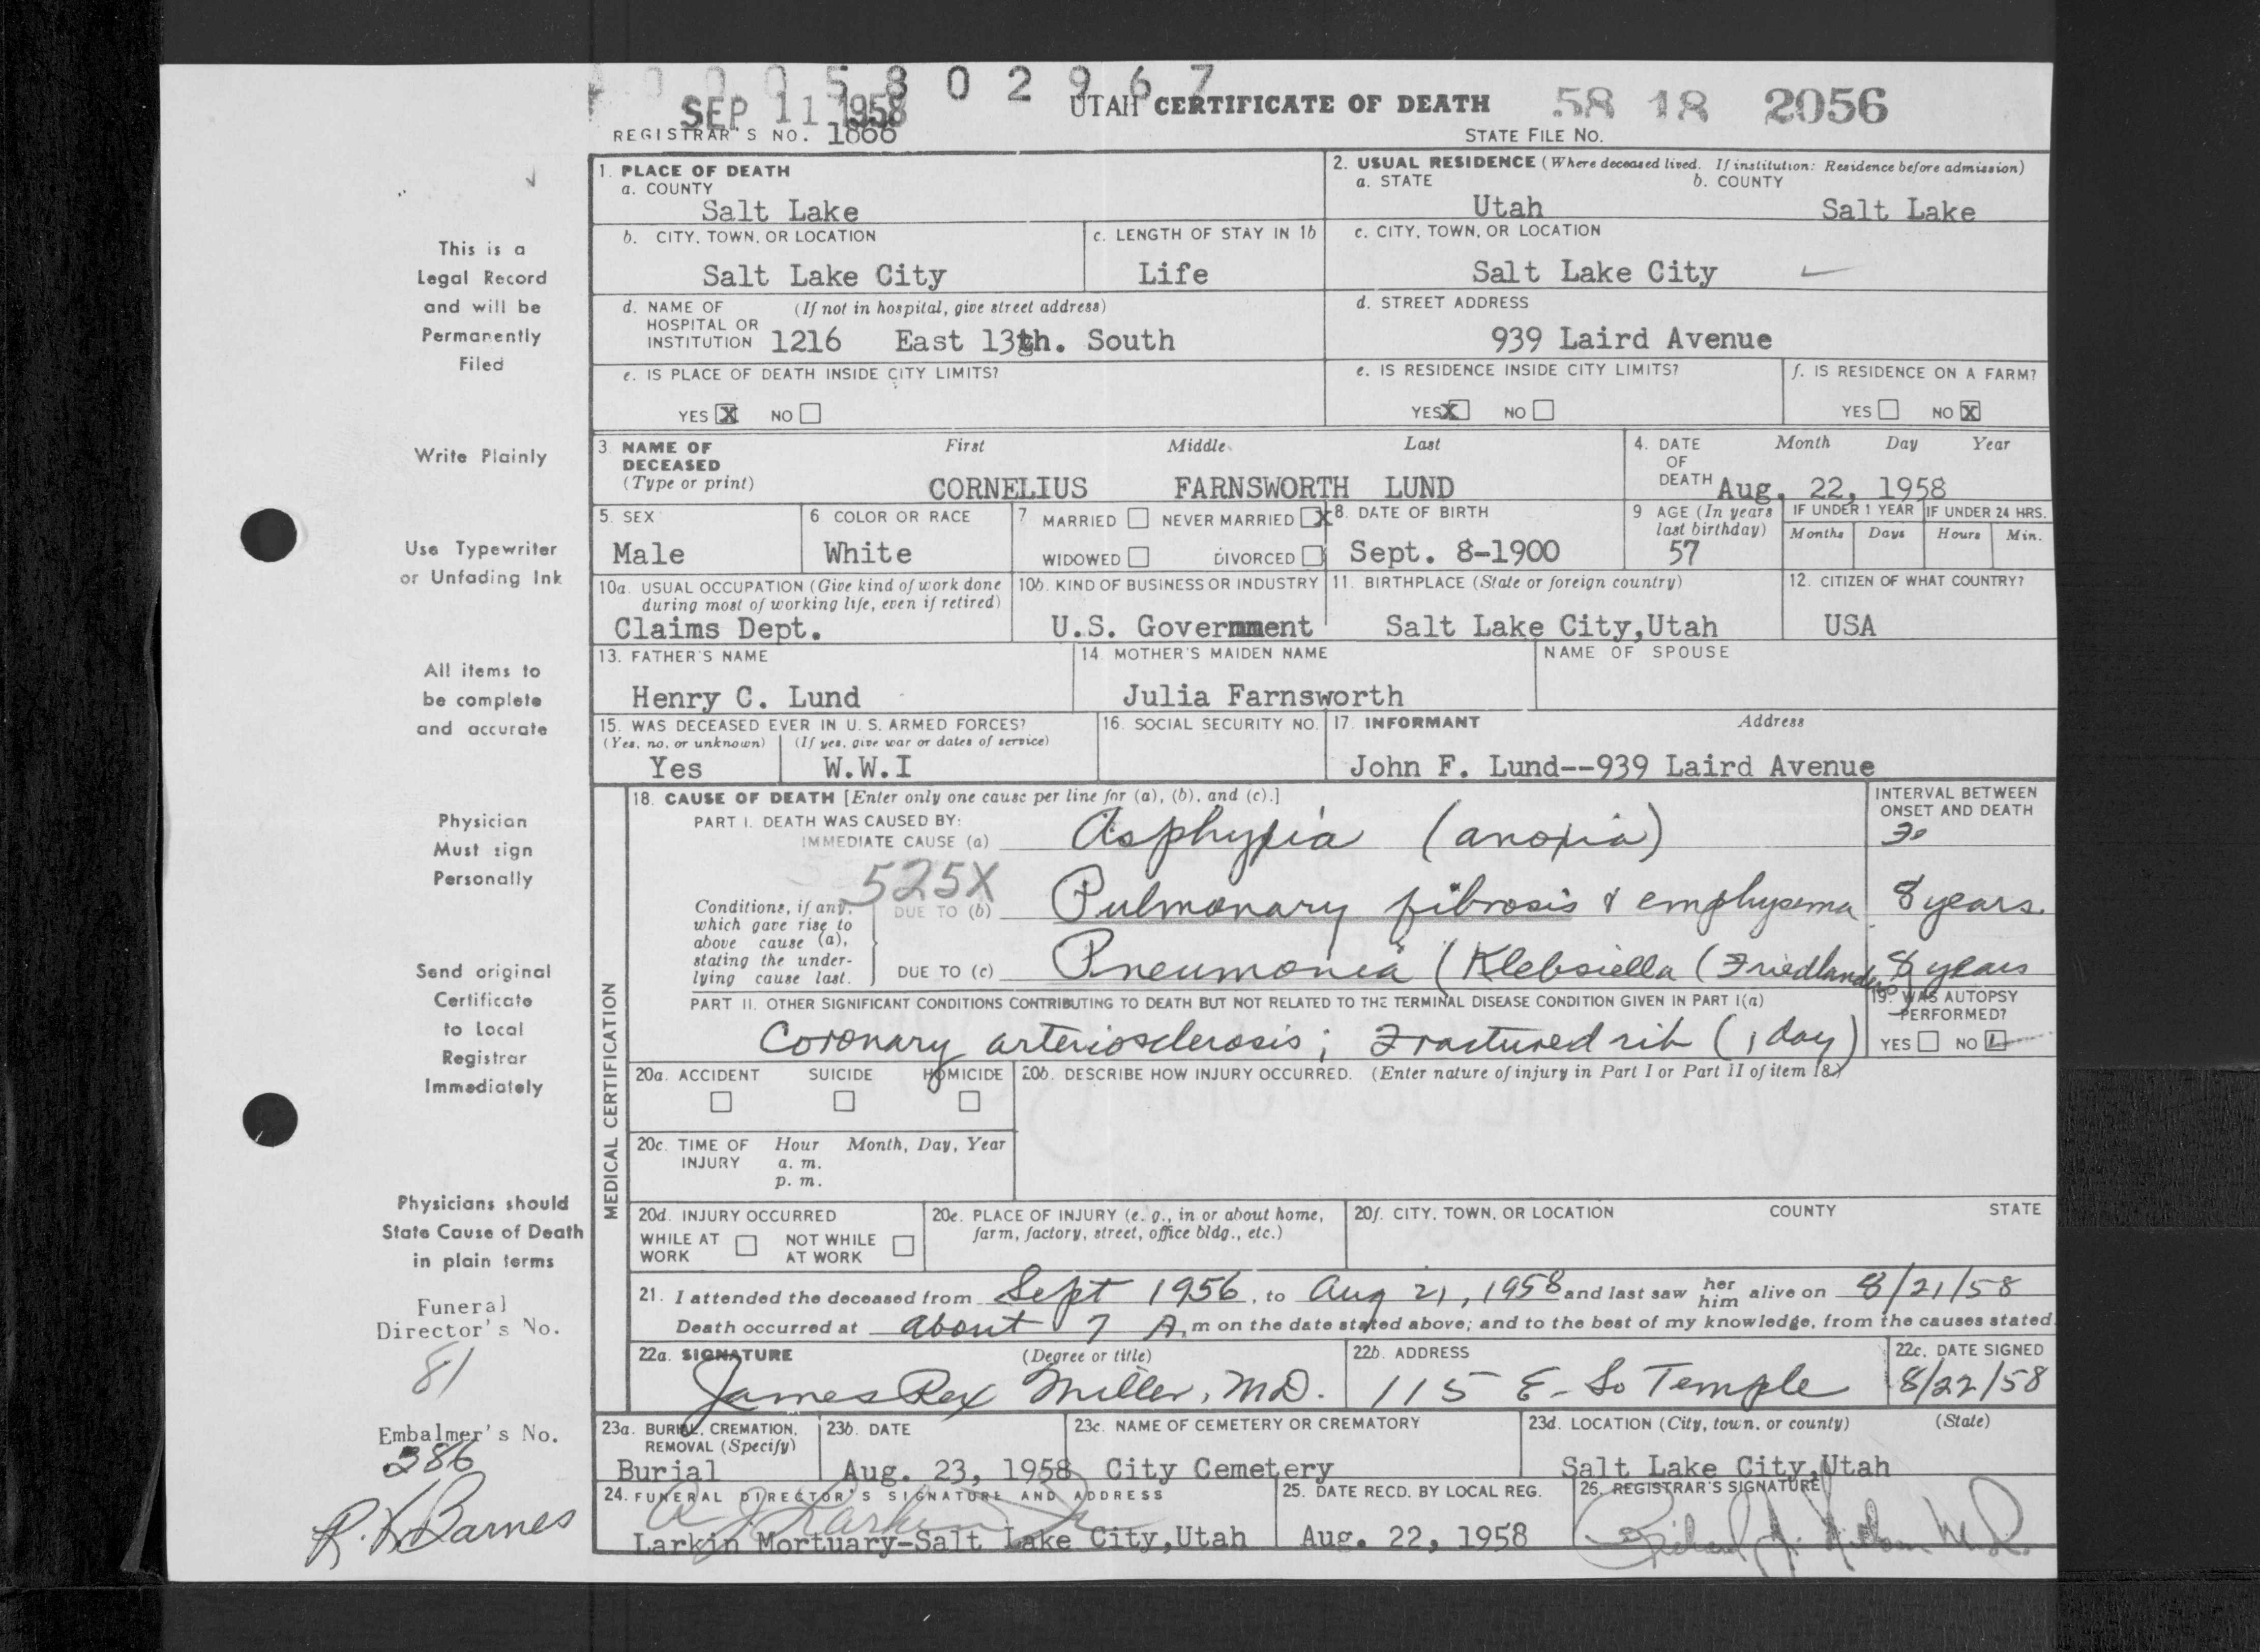 0 0 0 5 8 0 2 9 6 7
SEP 11 1958
UTAH CERTIFICATE OF DEATH
58 18 2056
REGISTRAR'S NO. 1866
STATE FILE NO.
1. PLACE OF DEATH
a. COUNTY
Salt Lake
2. USUAL RESIDENCE (Where deceased lived. If institution: Residence before admission)
a. STATE b. COUNTY
Utah Salt Lake
b. CITY, TOWN, OR LOCATION
Salt Lake City
c. LENGTH OF STAY IN 1b
Life
c. CITY, TOWN, OR LOCATION
Salt Lake City
d. NAME OF (If not in hospital, give street address)
HOSPITAL OR
INSTITUTION 1216 East 13th. South
d. STREET ADDRESS
939 Laird Avenue
e. IS PLACE OF DEATH INSIDE CITY LIMITS?
YES X NO
e. IS RESIDENCE INSIDE CITY LIMITS?
YES X NO
f. IS RESIDENCE ON A FARM?
YES NO X
3. NAME OF DECEASED
(Type or print)
First Middle Last
CORNELIUS FARNSWORTH LUND
4. DATE OF DEATH
Month Day Year
Aug. 22, 1958
5. SEX
Male
6 COLOR OR RACE
White
7 MARRIED NEVER MARRIED X
WIDOWED DIVORCED
8. DATE OF BIRTH
Sept. 8-1900
9 AGE (In years last birthday)
57
IF UNDER 1 YEAR
Months Days
IF UNDER 24 HRS.
Hours Min.
10a. USUAL OCCUPATION (Give kind of work done
during most of working life, even if retired)
Claims Dept.
10b. KIND OF BUSINESS OR INDUSTRY
U.S. Government
11. BIRTHPLACE (State or foreign country)
Salt Lake City,Utah
12. CITIZEN OF WHAT COUNTRY?
USA
13. FATHER'S NAME
Henry C. Lund
14. MOTHER'S MAIDEN NAME
Julia Farnsworth
NAME OF SPOUSE
15. WAS DECEASED EVER IN U. S. ARMED FORCES?
(Yes, no, or unknown) (If yes, give war or dates of service)
Yes W.W.I
16. SOCIAL SECURITY NO.
17. INFORMANT Address
John F. Lund--939 Laird Avenue
MEDICAL CERTIFICATION
18. CAUSE OF DEATH [Enter only one cause per line for (a), (b), and (c).]
INTERVAL BETWEEN
ONSET AND DEATH
PART I. DEATH WAS CAUSED BY:
IMMEDIATE CAUSE (a) Asphyxia (anoxia)
525X
Conditions, if any,
which gave rise to
above cause (a),
stating the under-
lying cause last.
DUE TO (b) Pulmonary fibrosis & emphysema 8 years.
DUE TO (c) Pneumonia (Klebsiella (Friedlanders) 8 years
PART II. OTHER SIGNIFICANT CONDITIONS CONTRIBUTING TO DEATH BUT NOT RELATED TO THE TERMINAL DISEASE CONDITION GIVEN IN PART I(a)
Coronary arteriosclerosis; Fractured rib (1 day)
19. WAS AUTOPSY
PERFORMED?
YES NO
20a. ACCIDENT SUICIDE HOMICIDE
20b. DESCRIBE HOW INJURY OCCURRED. (Enter nature of injury in Part I or Part II of item 18.)
20c. TIME OF INJURY
Hour Month, Day, Year
a. m.
p. m.
20d. INJURY OCCURRED
WHILE AT WORK NOT WHILE AT WORK
20e. PLACE OF INJURY (e. g., in or about home,
farm, factory, street, office bldg., etc.)
20f. CITY, TOWN, OR LOCATION COUNTY STATE
21. I attended the deceased from Sept 1956, to Aug 21, 1958 and last saw her him alive on 8/21/58
Death occurred at about 7 A. m on the date stated above; and to the best of my knowledge, from the causes stated.
22a. SIGNATURE (Degree or title)
James Rex Miller, M.D.
22b. ADDRESS
115 E. So Temple
22c. DATE SIGNED
8/22/58
23a. BURIAL, CREMATION,
REMOVAL (Specify)
Burial
23b. DATE
Aug. 23, 1958
23c. NAME OF CEMETERY OR CREMATORY
City Cemetery
23d. LOCATION (City, town, or county) (State)
Salt Lake City,Utah
24. FUNERAL DIRECTOR'S SIGNATURE AND ADDRESS
Larkin Mortuary-Salt Lake City,Utah
25. DATE RECD. BY LOCAL REG.
Aug. 22, 1958
26. REGISTRAR'S SIGNATURE
This is a
Legal Record
and will be
Permanently
Filed
Write Plainly
Use Typewriter
or Unfading Ink
All items to
be complete
and accurate
Physician
Must sign
Personally
Send original
Certificate
to Local
Registrar
Immediately
Physicians should
State Cause of Death
in plain terms
Funeral
Director's No.
81
Embalmer's No.
386
Barnes